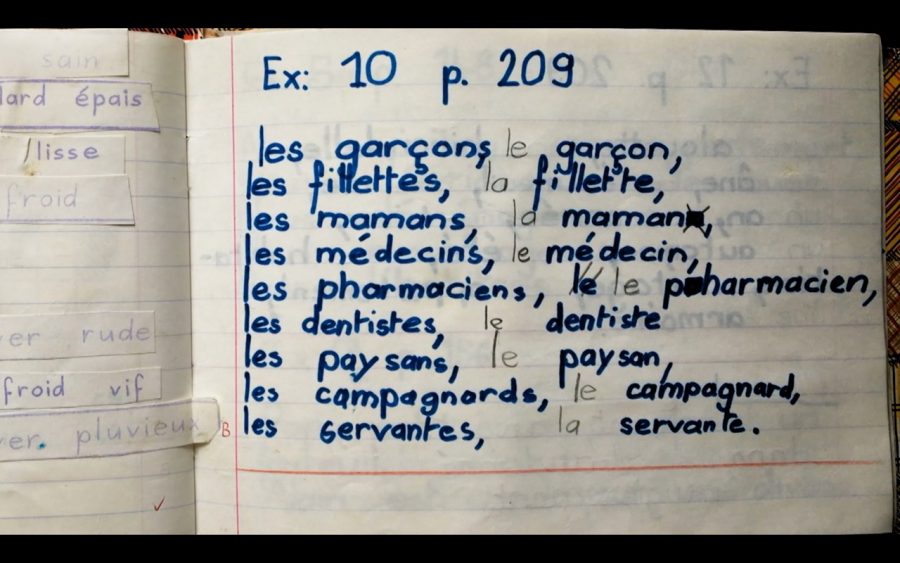 sain
lard épais
/lisse
froid
ver rude
froid vif
ver. pluvieux
Ex: 10 p. 209
les garçons le garçon,
les fillettes, la fillette,
les mamans, la maman,
les médecins, le médecin,
les pharmaciens, le le pharmacien,
les dentistes, le dentiste
les paysans, le paysan,
les campagnards, le campagnard,
B les servantes, la servante.